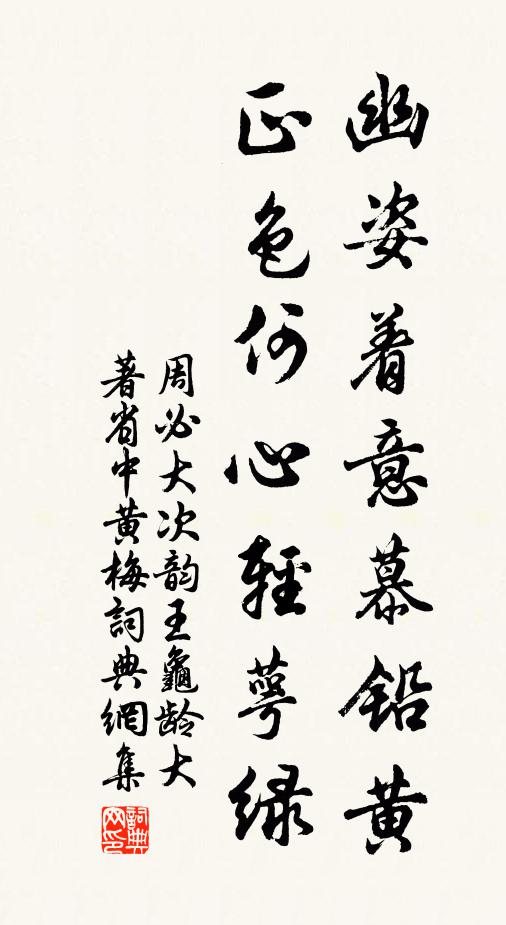 幽姿着意慕铅黄
正色何心轻萼绿
周必大次韵王龜龄大
著省中黄梅詞典網集
詞典网印